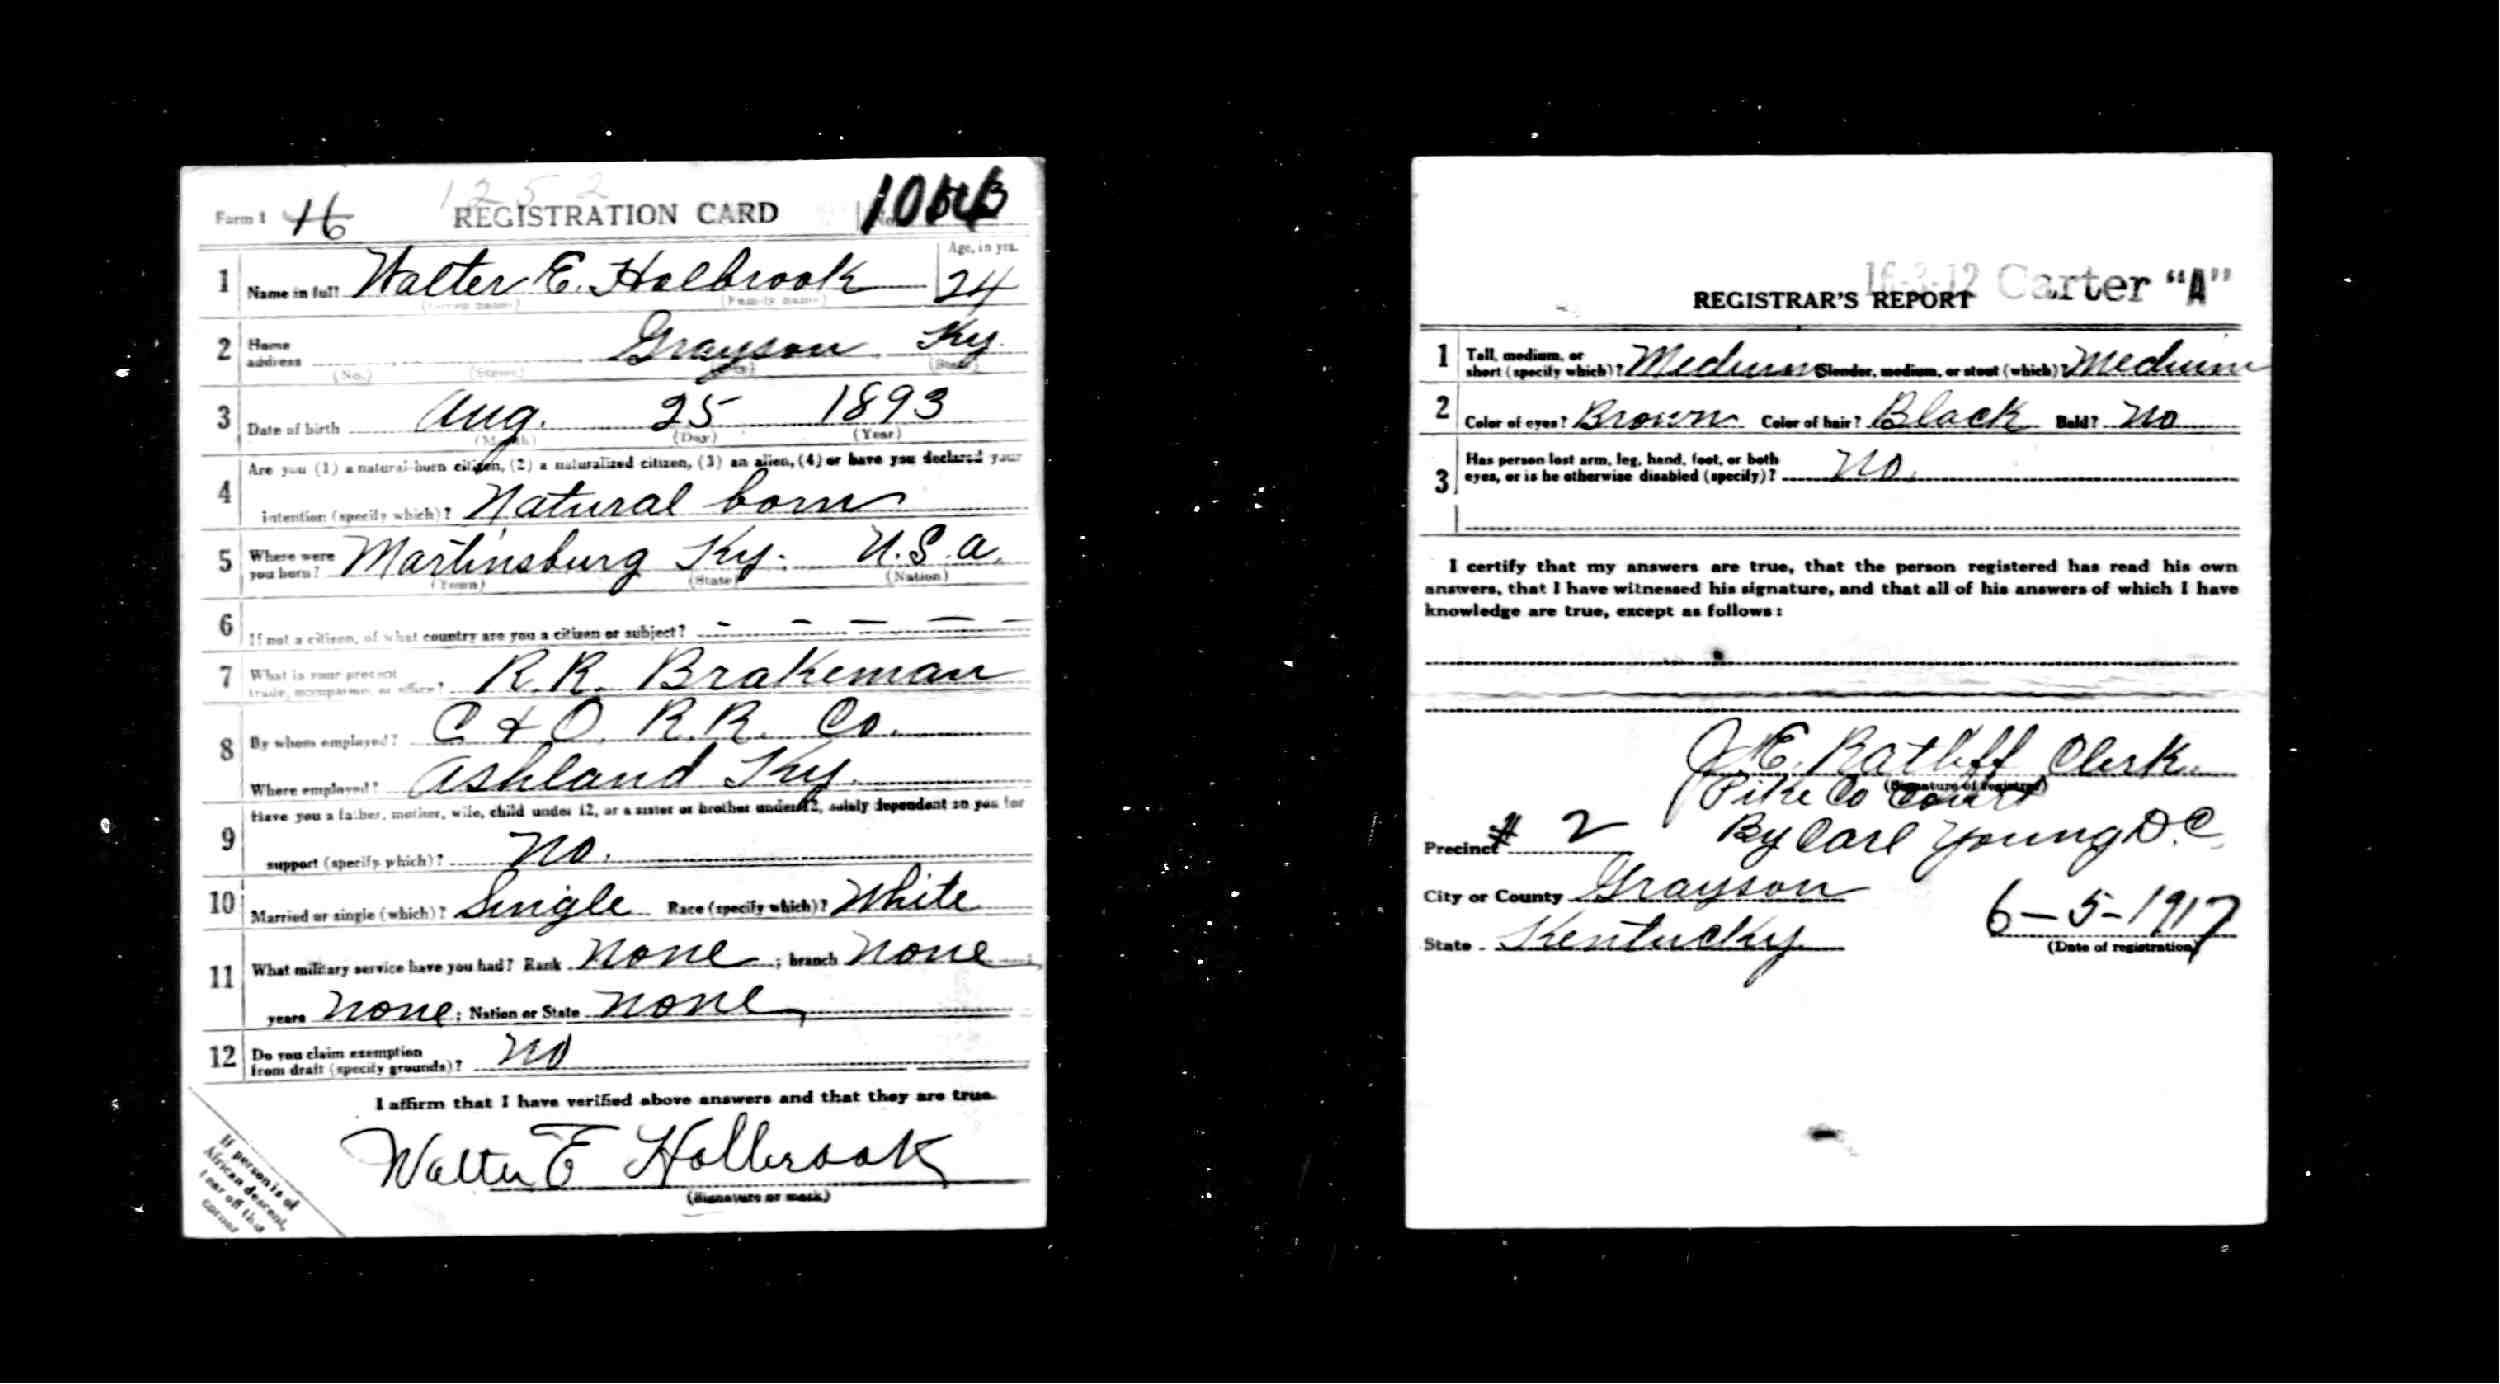 1252
Form 1 16 REGISTRATION CARD No.
1 Name in full Walter E. Holbrook Age, in yrs. 24
(Given name) (Family name)
2 Home address Grayson Ky.
(No.) (Street) (City) (State)
3 Date of birth Aug. 25 1893
(Month) (Day) (Year)
Are you (1) a natural-born citizen, (2) a naturalized citizen, (3) an alien, (4) or have you declared your
4 intention (specify which)? Natural born
5 Where were you born? Martinsburg Ky. U.S.A.
(Town) (State) (Nation)
6 If not a citizen, of what country are you a citizen or subject? - - - - -
7 What is your present trade, occupation, or office? R.R. Brakeman
8 By whom employed? C & O. R.R. Co.
Where employed? Ashland Ky.
Have you a father, mother, wife, child under 12, or a sister or brother under 12, solely dependent on you for
9 support (specify which)? No.
10 Married or single (which)? Single Race (specify which)? White
11 What military service have you had? Rank none ; branch none ;
years none ; Nation or State none
12 Do you claim exemption from draft (specify grounds)? No
I affirm that I have verified above answers and that they are true.
Walter E Holbrook
(Signature or mark)
If person is of
African descent,
tear off this
corner
16-3-12 Carter "A"
REGISTRAR'S REPORT
1 Tall, medium, or short (specify which)? Medium Slender, medium, or stout (which)? Medium
2 Color of eyes? Brown Color of hair? Black Bald? No
3 Has person lost arm, leg, hand, foot, or both
eyes, or is he otherwise disabled (specify)? No.
I certify that my answers are true, that the person registered has read his own
answers, that I have witnessed his signature, and that all of his answers of which I have
knowledge are true, except as follows:
J. E. Ratliff Clerk
(Signature of registrar)
Pike Co Court
Precinct # 2 By Carl Young D.C.
City or County Grayson
State Kentucky 6-5-1917
(Date of registration)